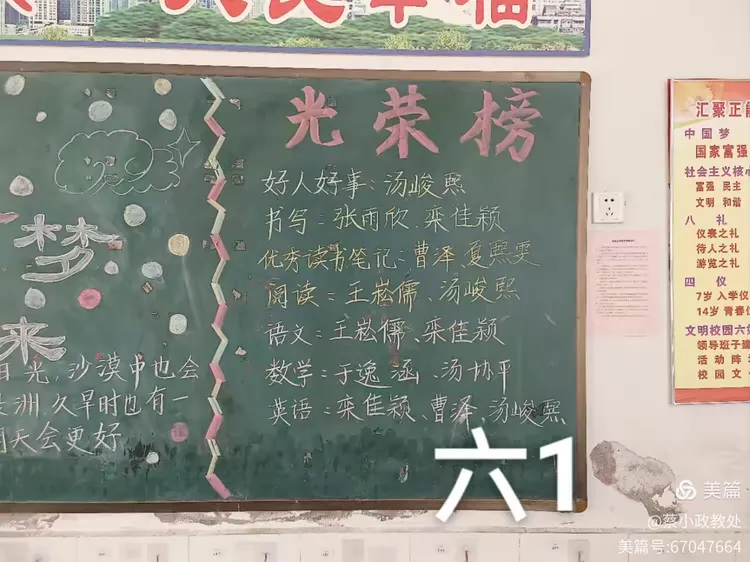 人民幸福
光荣榜
好人好事：汤峻熙
书写：张雨欣、栾佳颖
优秀读书笔记：曹泽、夏熙雯
阅读：王崧儒、汤峻熙
语文：王崧儒、栾佳颖
数学：于逸涵、汤协平
英语：栾佳颖、曹泽、汤峻熙
梦
来
光，沙漠中也会
洲，久旱时也有一
天会更好
汇聚正能
中国梦
国家富强
社会主义核心
富强 民主
文明 和谐
八 礼
仪表之礼
待人之礼
游览之礼
四 仪
7岁 入学仪
14岁 青春仪
文明校园六
领导班子
活动阵
校园文
六1
美篇
@蔡小政教处
美篇号:67047664